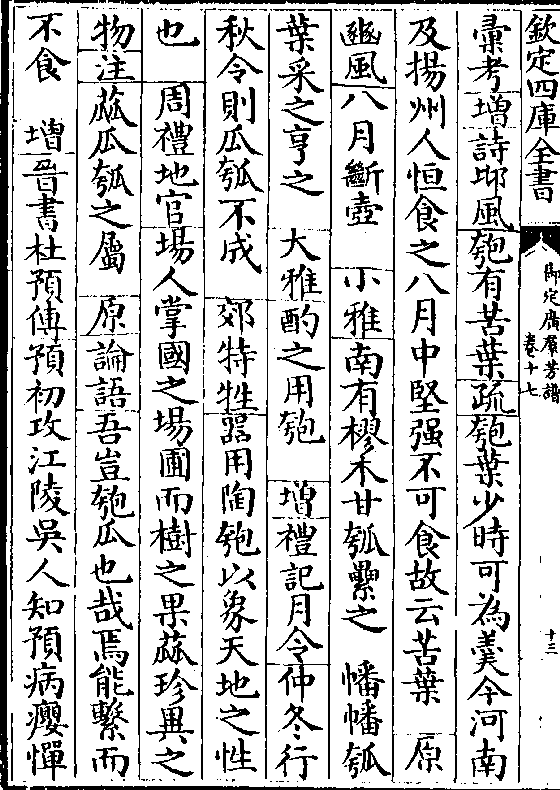 欽定四庫全書
御定廣羣芳譜
卷十七
十三
彚考增詩邶風匏有苦葉疏匏葉少時可為羮今河南
及揚州人恒食之八月中堅强不可食故云苦葉 原
豳風八月斷壺 小雅南有樛木甘瓠纍之 幡幡瓠
葉采之亨之 大雅酌之用匏 增禮記月令仲冬行
秋令則瓜瓠不成 郊特牲器用陶匏以象天地之性
也 周禮地官場人掌國之場圃而樹之果蓏珍異之
物注蓏瓜瓠之屬 原論語吾豈匏瓜也哉焉能繫而
不食 增晉書杜預傳預初攻江陵吳人知預病癭憚